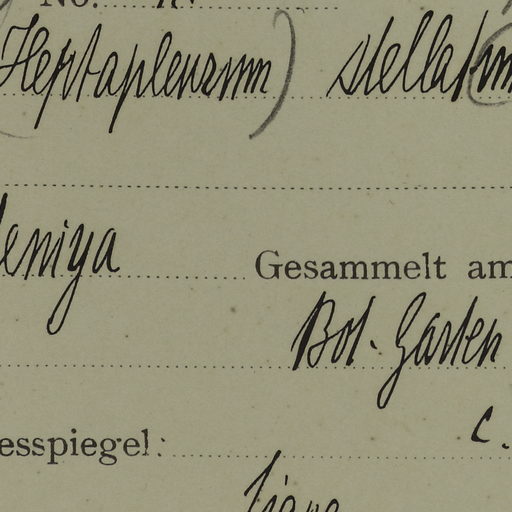 No.
Heptapleurum) stellatum
eniya Gesammelt am
Bot. Garten
esspiegel: c.